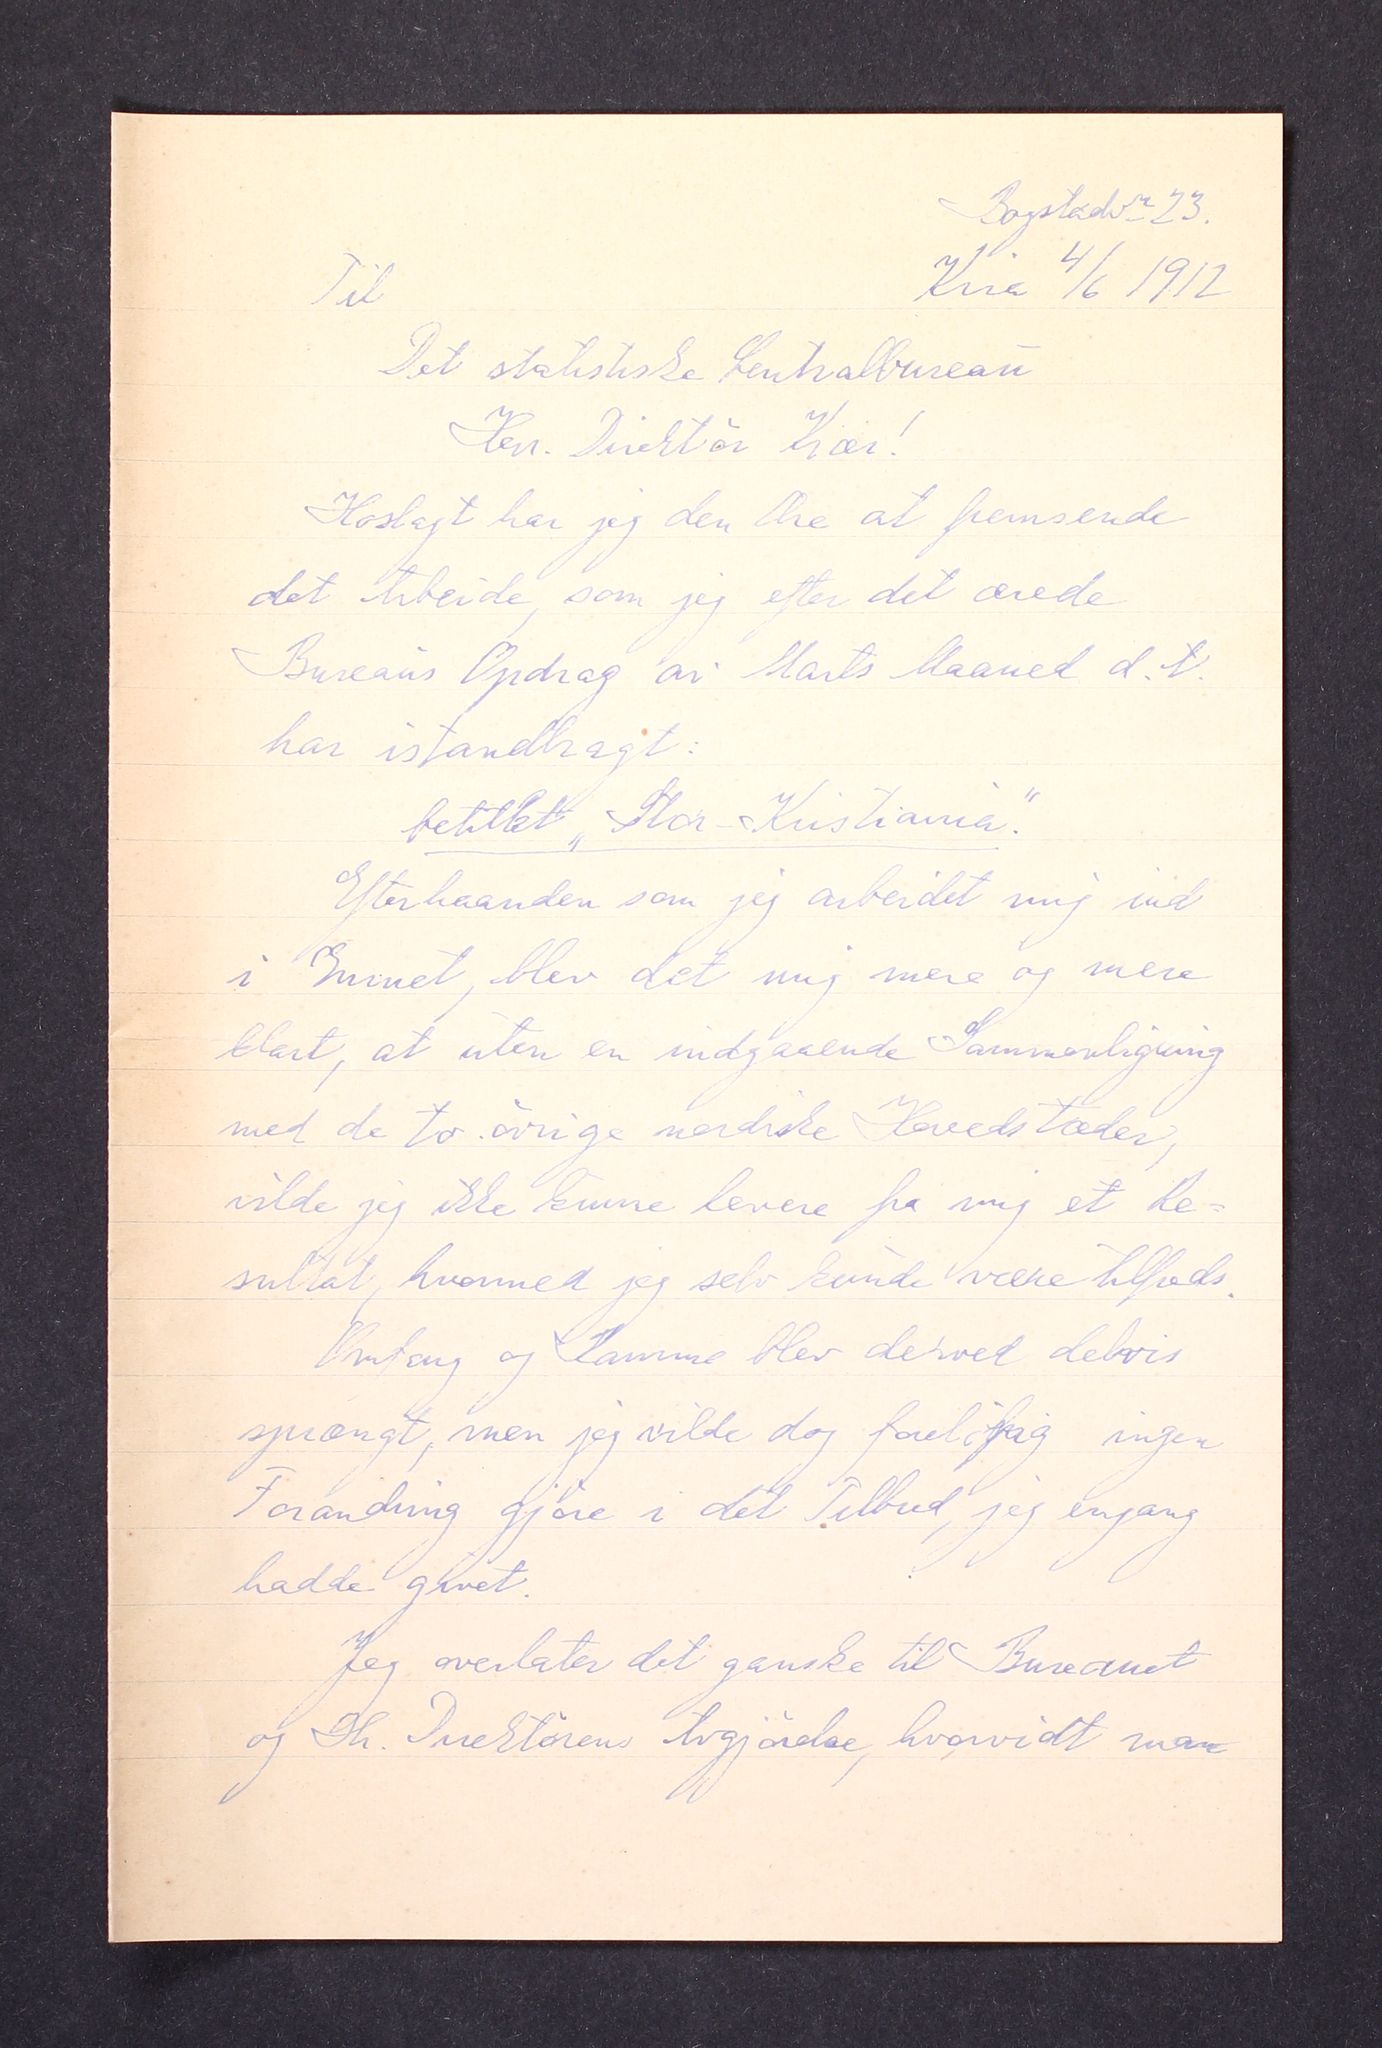 Bogstadvn 23.
Kria 4/6 1912
Til
Det statistiske Centralbureau
Herr. Direktör Kiær!
Hoslagt har jeg den Ære at fremsende
det Arbeide, som jeg efter det ærede
Bureaus Opdrag av Marts Maaned d. A.
har istandbragt:
betitlet "Stor-Kristiania".
Efterhaanden som jeg arbeidet mig ind
i Emnet, blev det mig mere og mere
klart, at uten en indgaaende Sammenligning
med de to övrige nordiske Hovedstæder,
vilde jeg ikke kunne levere fra mig et Re=
sultat, hvormed jeg selv kunde være tilfreds.
Omfang og Ramme blev derved delvis
sprængt, men jeg vilde dog forelöbig ingen
Forandring gjöre i det Tilbud, jeg engang
hadde givet.
Jeg overlater det ganske til Bureauet
og Hr. Direktörens Avgjörelse, hvorvidt man